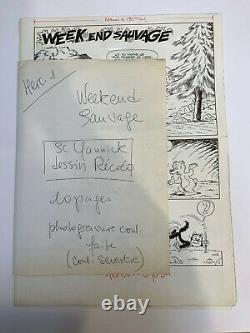 WEEK END SAUVAGE
Herc. 1
Weekend
Sauvage
Sc Yannick
dessin Ricoq
10 pages
photogravure coul.
faite
(coul. Sevestre)
?